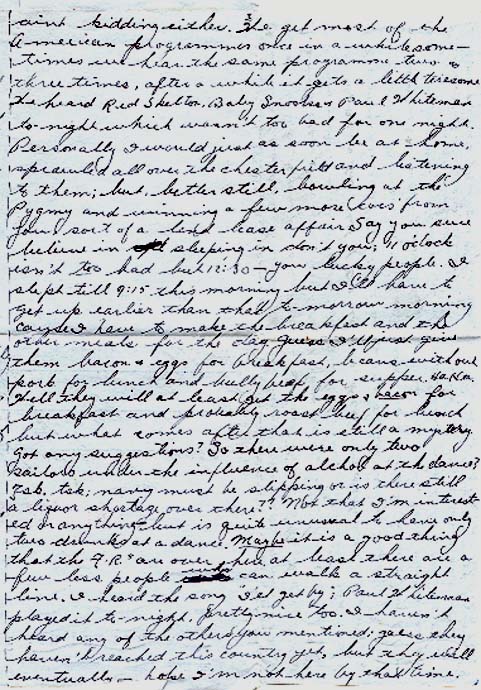 aint kidding either. We get most of the
American programmes once in a while some-
times we hear the same programme two or
three times, after a while it gets a little tiresome
We heard Red Skelton, Baby Snooks & Paul Whiteman
to-night which wasn't too bad for one night.
Personally I would just as soon be at home,
sprawled all over the chesterfield and listening
to them; but, better still, bowling at the
Pygmy and winning a few more from
you sort of a lend lease affair. Say you sure
believe in sleeping in don't you; 11 o'clock
isn't too bad but 12:30 - you lucky people. I
slept till 9:15 this morning but I'll have to
get up earlier than that to-morrow morning
cause I have to make the breakfast and the
other meals for the day, guess I'll just give
them bacon & eggs for breakfast, beans without
pork for lunch and bully beef for supper. Ha Ha.
Well they will at least get the eggs & bacon for
breakfast and probably roast beef for lunch
but what comes after that is still a mystery
Got any suggestions? So there were only two
sailors under the influence of alchol at the dance?
Tsk, tsk, navy must be slipping or is there still
a liquor shortage over there?? Not that I'm interest-
ed or anything but is quite unusual to have only
two drunks at a dance. Maybe it is a good thing
that the F.R's are over here at least there are a
few less people can walk a straight
line. I heard the song I'll get by; Paul Whiteman
played it to-night. Pretty nice too. I haven't
heard any of the others you mentioned; guess they
haven't reached this country yet, but they will
eventually - hope I'm not here by that time.